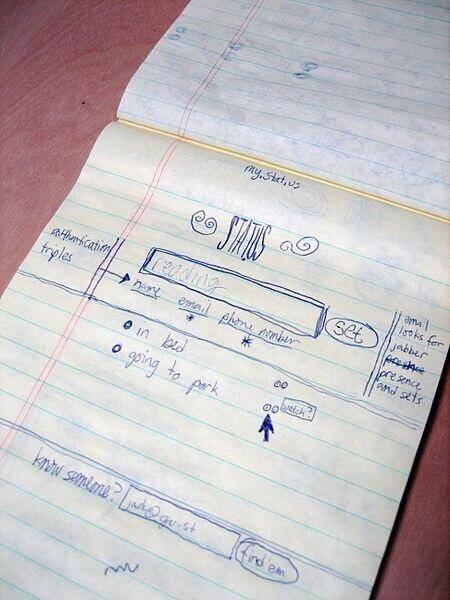 my.stat.us
STATUS
authentication
triples
reading
set
name email phone number
* *
email
looks for
jabber
presence
presence
and sets
in bed
going to park
watch?
know someone?
jack@gu.st
find'em